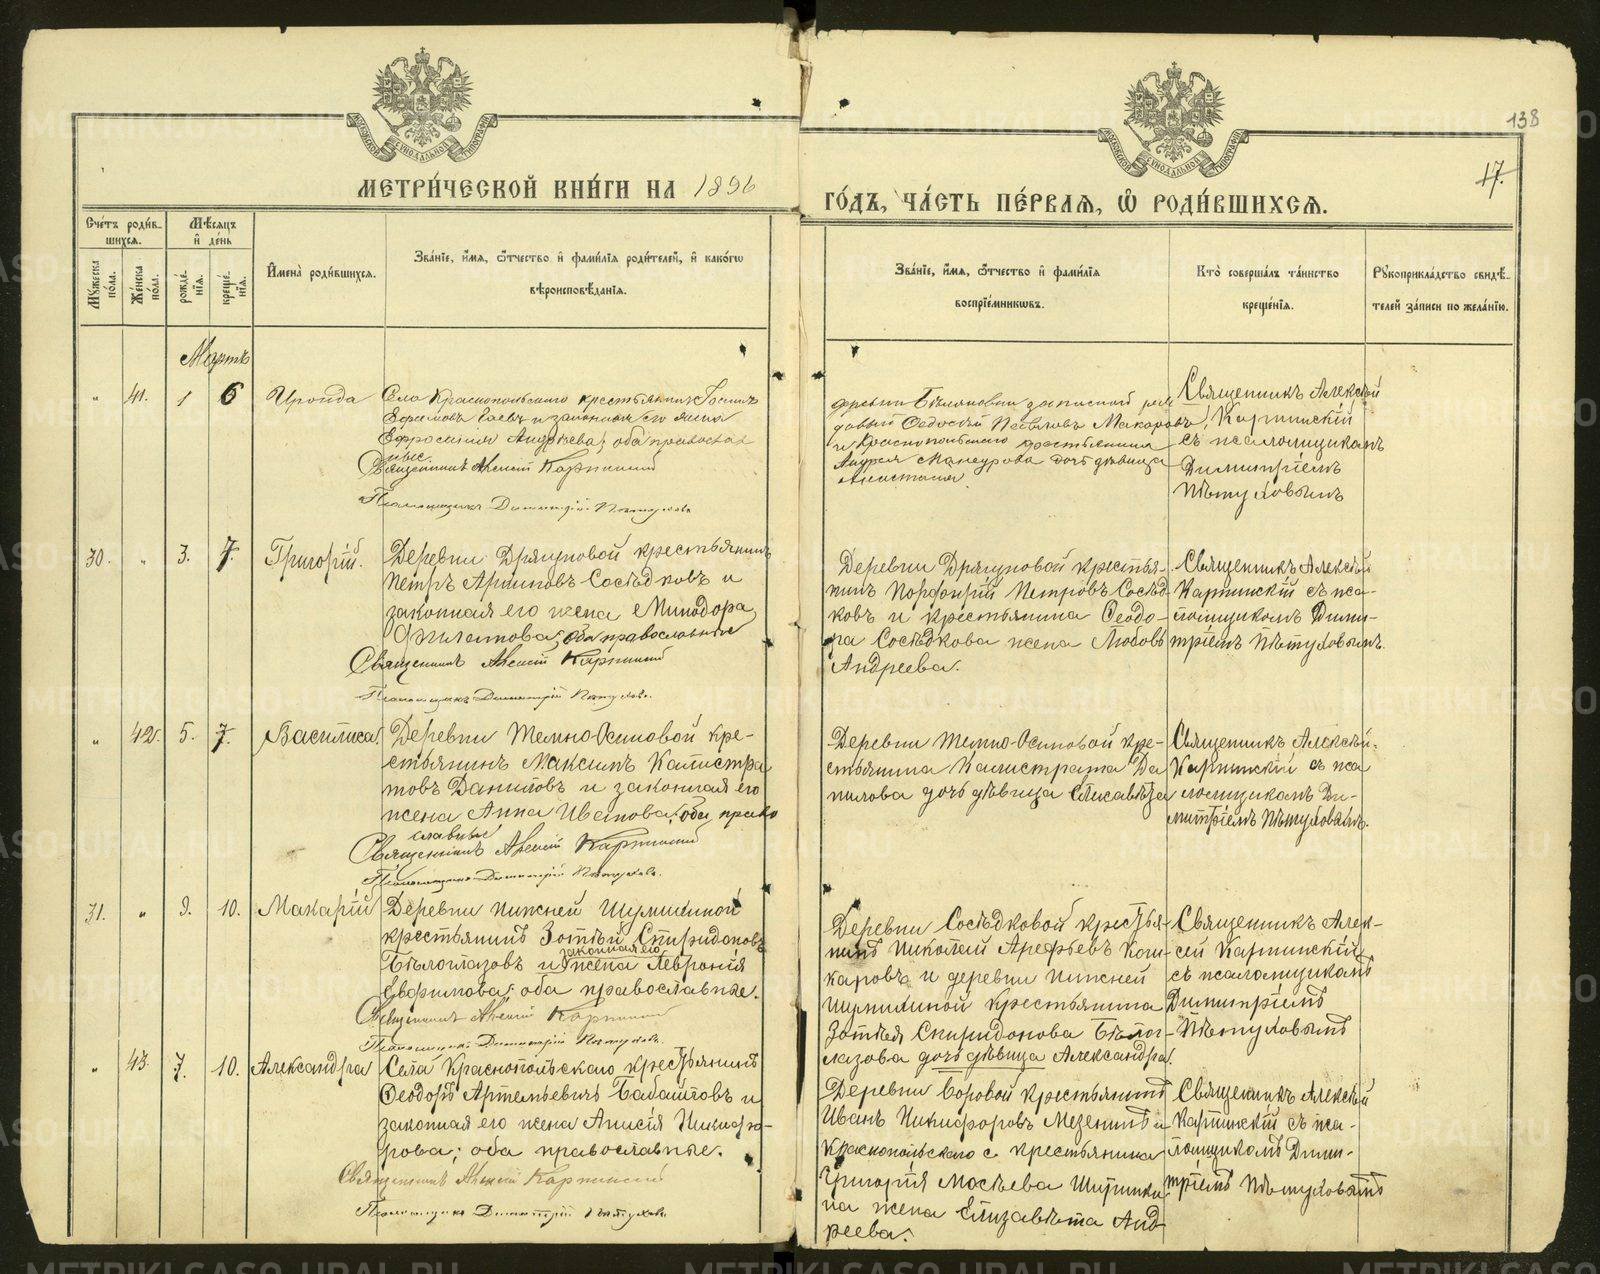 138
17.
МОСКОВСКОЙ СѴНОДАЛЬНОЙ ТИПОГРАФІИ
МОСКОВСКОЙ СѴНОДАЛЬНОЙ ТИПОГРАФІИ
МЕТРИ́ЧЕСКОЙ КНИ́ГИ НА 1896
ГО́ДЪ, ЧА́СТЬ ПЕ́РВАЯ, Ѡ҆ РОДИ́ВШИХСЯ.
Сче́тъ роди́в-
шихся.
Мѣ́сяцъ
и҆ де́нь
Мꙋ́жеска
по́ла.
Же́нска
по́ла.
рожде́-
нія.
креще́-
нія.
И҆мена̀ роди́вшихся.
Зва́нїе, и҆́мя, ѻ҆́тчество и҆ фами́лїя роди́телей, и҆ како́гѡ
вѣроисповѣ́данїя.
Зва́нїе, и҆́мя, ѻ҆́тчество и҆ фами́лїя
воспрїе́мникѡвъ.
Кто̀ соверша́лъ та́инство
креще́нїя.
Рꙋкоприкла́дство свидѣ́-
телей за́писи по жела́нїю.
Мартъ
" 41. 1 6 Ироида
Села Краснопольскаго крестьянинъ
Ефимовъ и законная его жена
Ефросинія Андреева; оба православ
ные.
Священникъ Алексій Карпинскій
Псаломщикъ Димитрій Пѣтуховъ
деревни запасной ря
довый Федосій Макаровъ
и Краснопольскаго крестьянина
Андрея дочь дѣвица
Анастасія.
Священникъ Алексѣй
Карпинскій
съ псаломщикомъ
Димитріемъ
Пѣтуховымъ
30. " 3. 7. Григорій.
Деревни Дрягуновой крестьянинъ
Петръ Сосѣдковъ и
законная его жена Минодора
Филетова; оба православные
Священникъ Алексій Карпинскій
Псаломщикъ Димитрій Пѣтуховъ.
Деревни Дрягуновой крестья-
нинъ Порфирій Петровъ Сосѣд
ковъ и крестьянина Ѳеодо-
ра Сосѣдкова жена Любовь
Андреева.
Священникъ Алексѣй
Карпинскій съ пса-
ломщикомъ Дими-
тріемъ Пѣтуховымъ.
" 42. 5. 7. Василиса.
Деревни Темно-Осиновой кре-
стьянинъ Максимъ Калистра
товъ Даниловъ и законная его
жена Анна Ивановa; оба право
славные
Священникъ Алексій Карпинскій
Псаломщикъ Димитрій Пѣтуховъ.
Деревни Темно-Осиновой кре-
стьянина Калистрата Да
нилова дочь дѣвица Елисавѣта
Священникъ Алексѣй
Карпинскій съ пса
ломщикомъ Ди-
митріемъ Пѣтуховымъ.
31. " 9. 10. Макарій
Деревни Нижней Шумихиной
крестьянинъ Зотѣй Спиридоновъ
законная его
Бѣлоглазовъ и жена Февронія
Евфимова; оба православные.
Священникъ Алексій Карпинскій
Псаломщикъ Димитрій Пѣтуховъ.
Деревни Сосѣдковой крестья-
нинъ Николай Арефьевъ Кош-
каровъ и деревни Нижней
Шумихиной крестьянина
Зотѣя Спиридонова Бѣлог-
лазова дочь дѣвица Александра.
Священникъ Алек-
сѣй Карпинскій
съ псаломщикомъ
Димитріемъ
Пѣтуховымъ
" 43. 7. 10. Александра
Села Краснопольскаго крестьянинъ
Ѳеодоръ Артемьевичъ Бабаиловъ и
законная его жена Анисія Никифо-
рова; оба православные.
Священникъ Алексій Карпинскій
Псаломщикъ Димитрій Пѣтуховъ
Деревни Боровой крестьянинъ
Иванъ Никифоровъ Мезенинъ и
Краснопольскаго с крестьянина
Григорія Мосѣева
на жена Елизавѣта Анд
реева.
Священникъ Алексѣй
Карпинскій съ пса-
ломщикомъ Дими-
тріемъ Пѣтуховымъ
METRIKI.GASO-URAL.RU